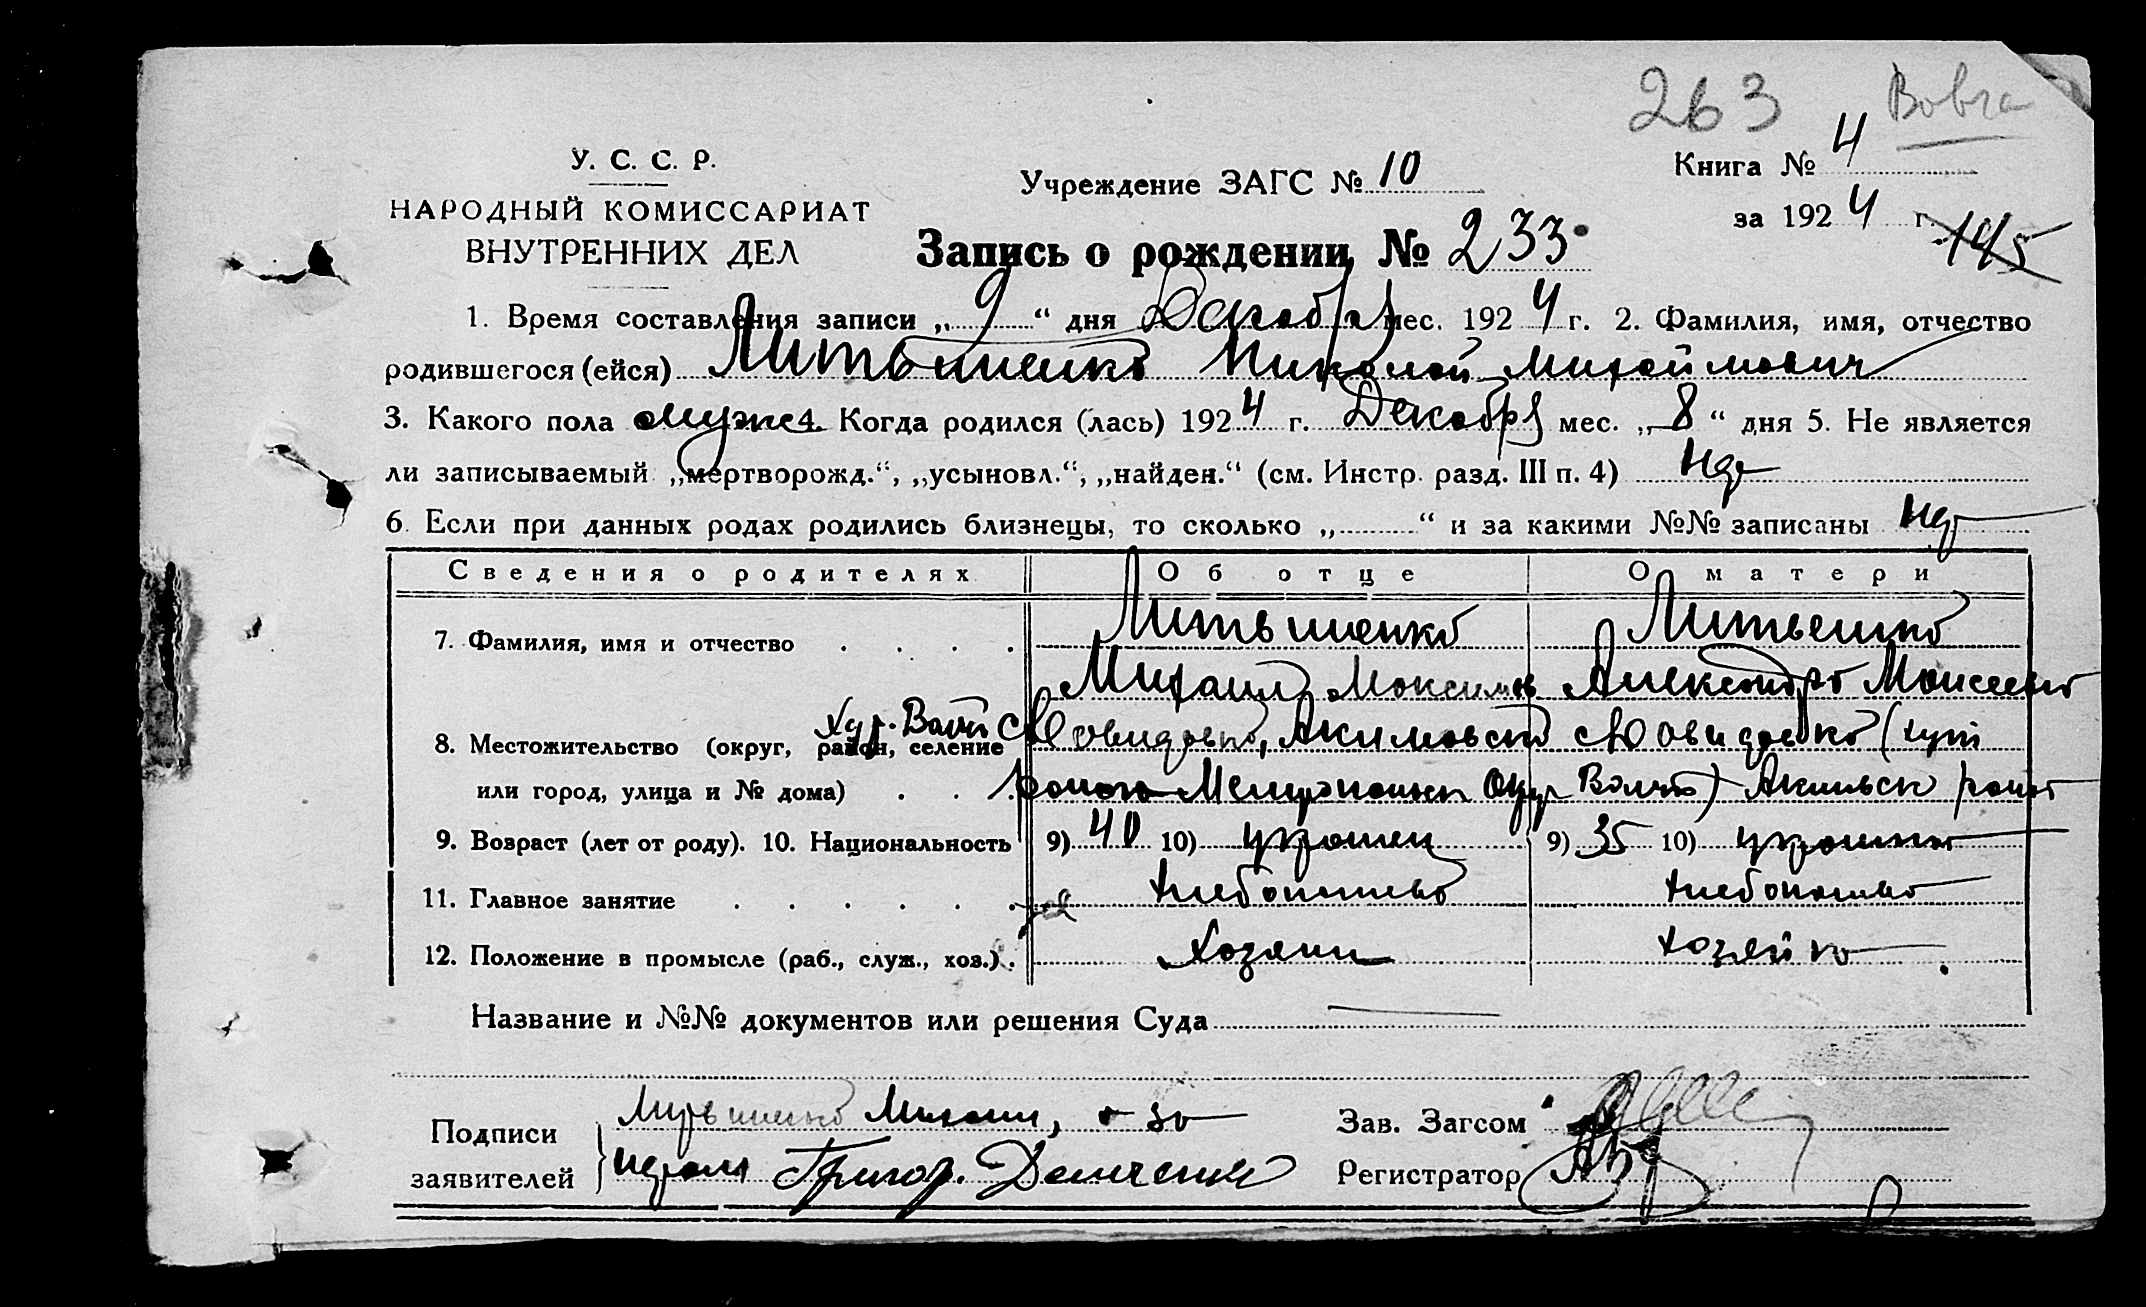 263 Вовча
У. С. С. Р.
НАРОДНЫЙ КОМИССАРИАТ
ВНУТРЕННИХ ДЕЛ
Учреждение ЗАГС № 10
Книга № 4
за 1924 г. 145
Запись о рождении № 233
1. Время составления записи „ 9 “ дня Декабря мес. 1924 г. 2. Фамилия, имя, отчество
родившегося (ейся) Литвиненко Николай Михайлович
3. Какого пола муж 4. Когда родился (лась) 1924 г. Декабря мес. „ 8 “ дня 5. Не является
ли записываемый „мертворожд.“, „усыновл.“, „найден.“ (см. Инстр. разд. III п. 4)
6. Если при данных родах родились близнецы, то сколько „ “ и за какими №№ записаны
Сведения о родителях Об отце О матери
7. Фамилия, имя и отчество Литвиненко
Михаил Максимов Александра Моисеевна
8. Местожительство (округ, район, селение
или город, улица и № дома)
района Мелитопольск Окр
9. Возраст (лет от роду). 10. Национальность 9) 40 10) украинец 9) 35 10) украинка
11. Главное занятие хлебопашество хлебопашество
12. Положение в промысле (раб., служ., хоз.) Хозяин хозяйка
Название и №№ документов или решения Суда
Подписи
заявителей
Литвиненко Михаил, а за
Григор. Демченко
Зав. Загсом
Регистратор